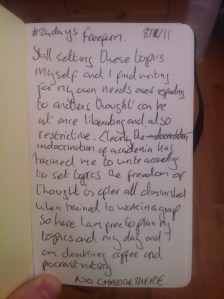 #24days Freeform. 8/12/11
Still setting these topics
myself and I find writing
for my own needs over responding
to anothers thought can be
at once liberating and also
restrictive. Clearly the
indoctrination of academia has
trained me to write according
to set topics the freedom of
thought is after all diminished
when trained to work in a group
So here I am free to plan my
topics and my day and I
am drinking coffee and
procrastinating
NO CHANGE THERE